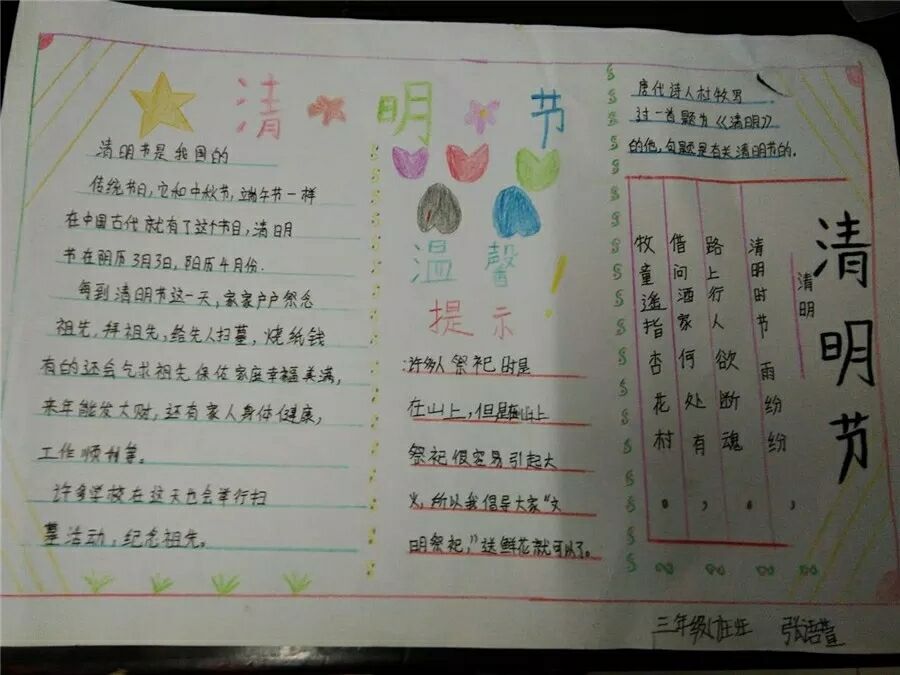 清明节
清明节是我国的
传统节日,它和中秋节,端午节一样
在中国古代就有了这个节日,清明
节在阴历3月3日,阳历4月份.
每到清明节这一天,家家户户祭念
祖先,拜祖先,给先人扫墓,烧纸钱
有的还会乞求祖先保佑家庭幸福美满,
来年能发大财,还有家人身体健康,
工作顺利等。
许多学校在这天也会举行扫
墓活动,纪念祖先。
温馨
提示!
:许多人祭祀时是
在山上,但是在山上
祭祀很容易引起大
火,所以我倡导大家“文
明祭祀,”送鲜花就可以了。
唐代诗人杜牧写
过一首题为《《清明》》
的他,句题是有关清明节的.
清明节
清明
清明时节雨纷纷,
路上行人欲断魂。
借问酒家何处有,
牧童遥指杏花村。
三年级 班 张语萱